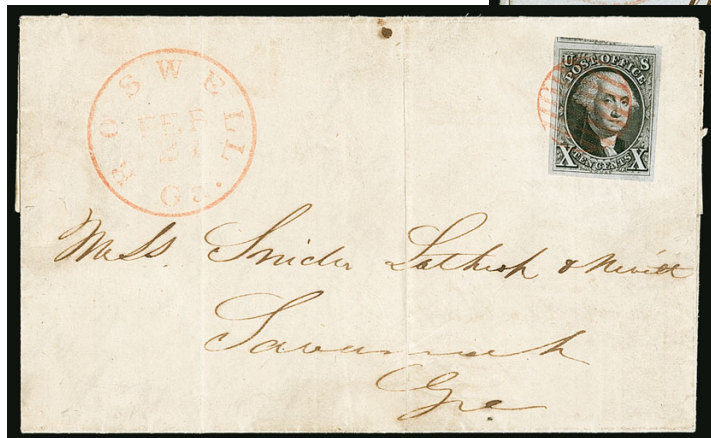 ROSWELL
FEB
Ga.
U S
POST OFFICE
X TEN CENTS X
Mess. Snider Lathrop & Nevitt
Savannah
Geo